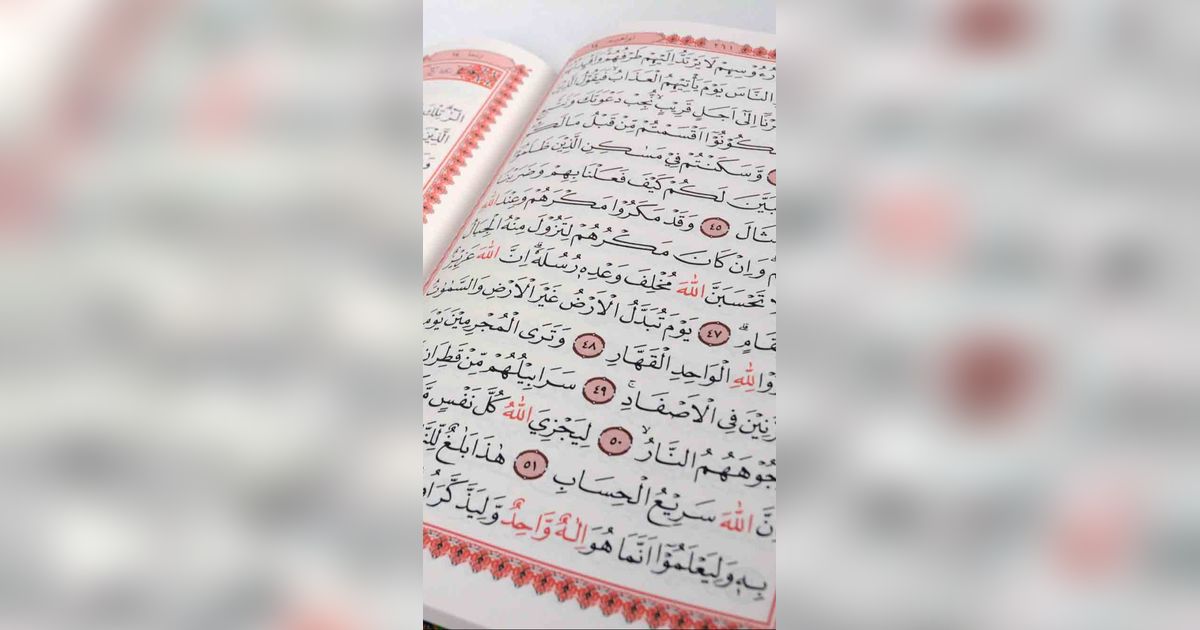 ابراهيم ١٤ ٢٦١
لَا يَرْتَدُّ اِلَيْهِمْ طَرْفُهُمْ
النَّاسَ يَوْمَ يَأْتِيْهِمُ الْعَذَابُ فَيَقُوْلُ
اِلٰٓى اَجَلٍ قَرِيْبٍ نُّجِبْ دَعْوَتَكَ
اَقْسَمْتُمْ مِّنْ قَبْلُ مَا لَكُمْ
وَّسَكَنْتُمْ فِيْ مَسٰكِنِ الَّذِيْنَ
لَكُمْ كَيْفَ فَعَلْنَا بِهِمْ وَضَرَبْنَا
٤٥ وَقَدْ مَكَرُوْا مَكْرَهُمْ وَعِنْدَ اللّٰهِ
وَاِنْ كَانَ مَكْرُهُمْ لِتَزُوْلَ مِنْهُ الْجِبَالُ
تَحْسَبَنَّ اللّٰهَ مُخْلِفَ وَعْدِهٖ رُسُلَهٗ ۗاِنَّ اللّٰهَ عَزِيْزٌ
٤٧ يَوْمَ تُبَدَّلُ الْاَرْضُ غَيْرَ الْاَرْضِ وَالسَّمٰوٰتُ
لِلّٰهِ الْوَاحِدِ الْقَهَّارِ ٤٨ وَتَرَى الْمُجْرِمِيْنَ يَوْمَ
فِى الْاَصْفَادِۚ ٤٩ سَرَابِيْلُهُمْ مِّنْ قَطِرَانٍ
النَّارُۙ ٥٠ لِيَجْزِيَ اللّٰهُ كُلَّ نَفْسٍ
اللّٰهَ سَرِيْعُ الْحِسَابِ ٥١ هٰذَا بَلٰغٌ
بِهٖ وَلِيَعْلَمُوْٓا اَنَّمَا هُوَ اِلٰهٌ وَّاحِدٌ وَّلِيَذَّكَّرَ